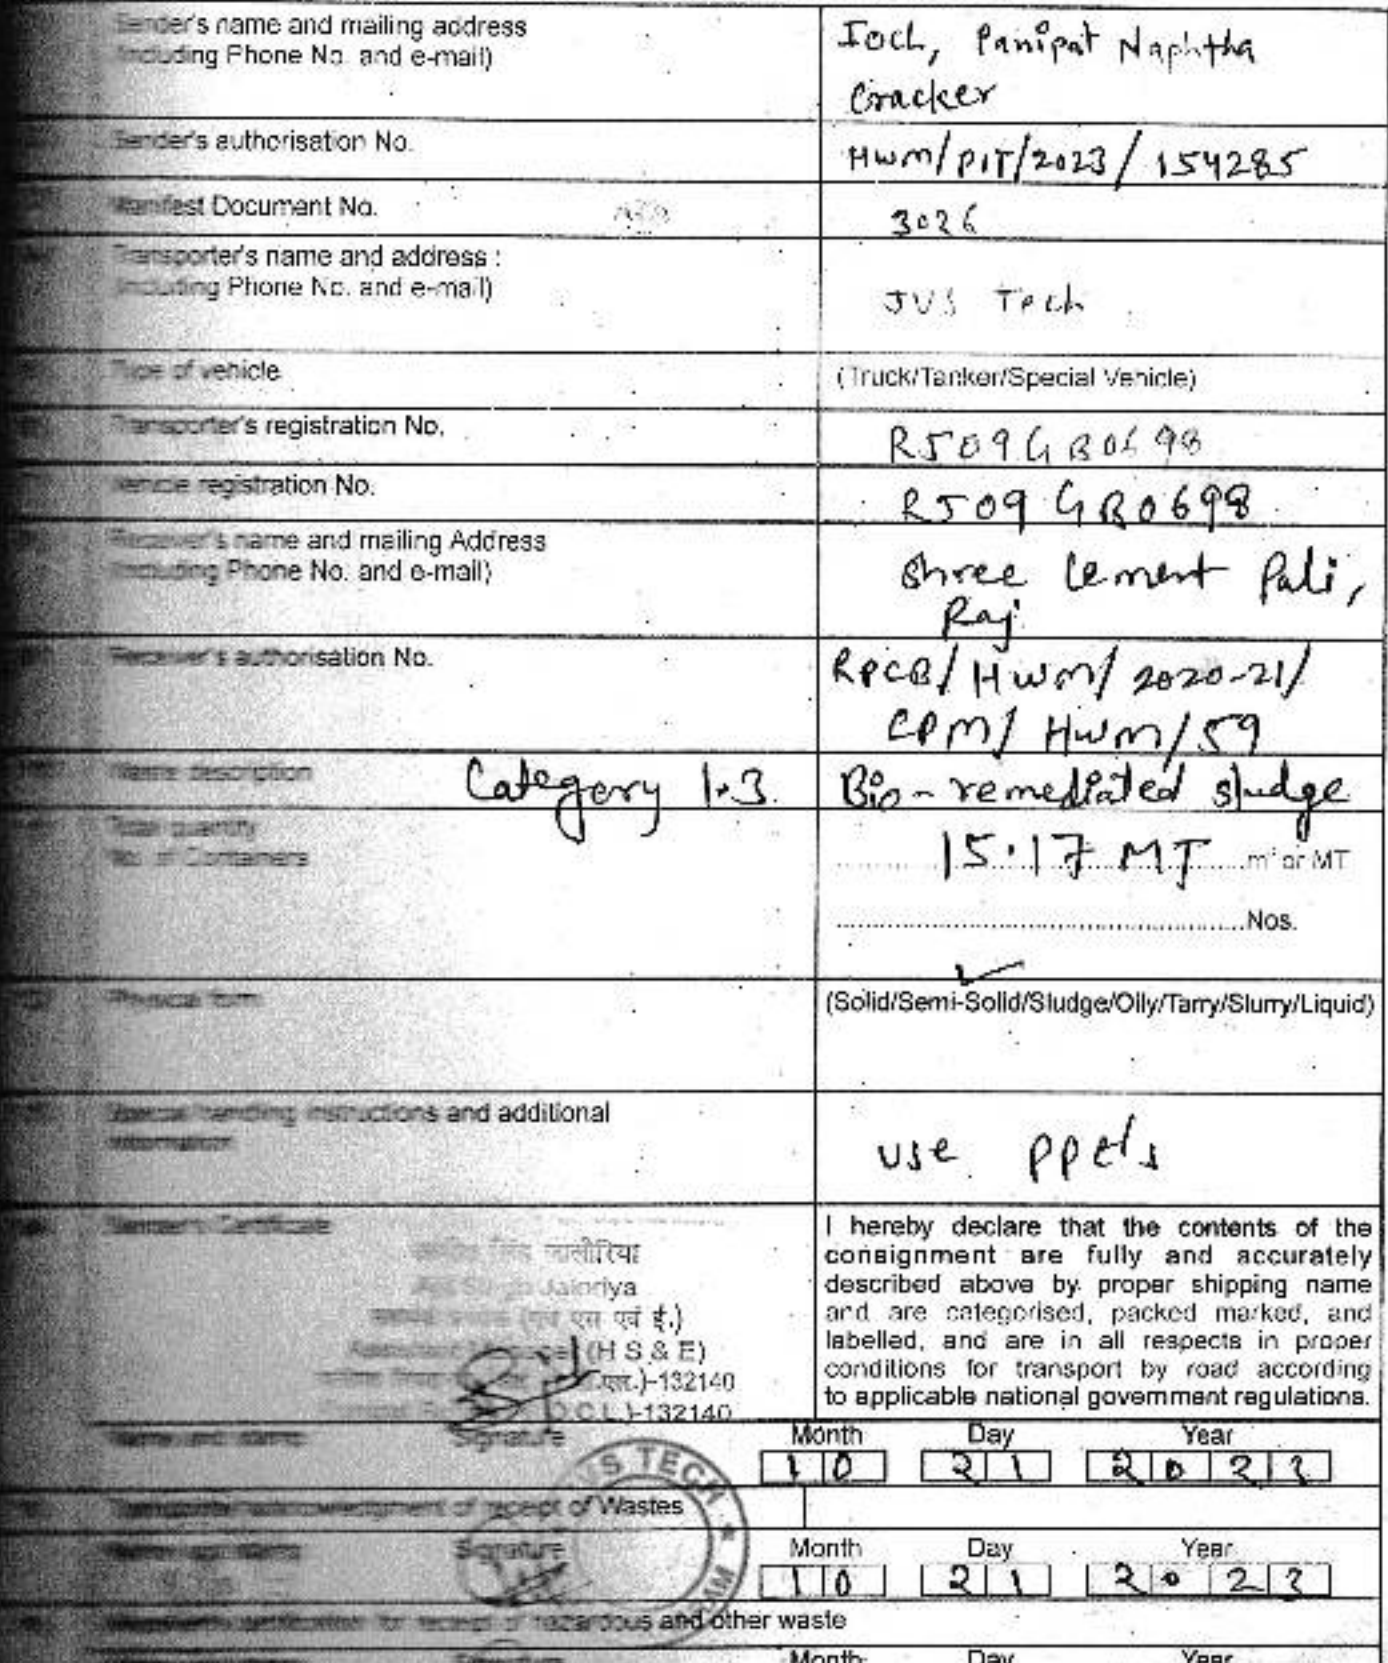 Sender's name and mailing address
(including Phone No. and e-mail)
IOCL, Panipat Naphtha
Cracker
Sender's authorisation No.
HWM/PIT/2023/154285
Manifest Document No.
3026
Transporter's name and address :
(including Phone No. and e-mail)
JVS Tech
Type of vehicle
(Truck/Tanker/Special Vehicle)
Transporter's registration No.
RJ09GB0698
Vehicle registration No.
RJ09GB0698
Receiver's name and mailing Address
(including Phone No. and e-mail)
Shree Cement Pali,
Raj
Receiver's authorisation No.
RPCB/HWM/2020-21/
CPM/HWM/59
Waste description
Category 1.3
Bio-remediated sludge
Total quantity
No. of Containers
15.17 MT m³ or MT
Nos.
Physical form
(Solid/Semi-Solid/Sludge/Oily/Tarry/Slurry/Liquid)
Special handling instructions and additional
information
use PPE's
Sender's Certificate
सिंह जालोरिया
Singh Jaloriya
(एच एस एवं ई.)
Assistant Manager (H S & E)
-132140
O.C.L.)-132140
I hereby declare that the contents of the
consignment are fully and accurately
described above by proper shipping name
and are categorised, packed marked, and
labelled, and are in all respects in proper
conditions for transport by road according
to applicable national government regulations.
Name and stamp Signature Month Day Year
10 21 2023
Transporter acknowledgment of receipt of Wastes
JVS TECH
Name and stamp Signature Month Day Year
10 21 2023
receipt of hazardous and other waste
Month Day Year